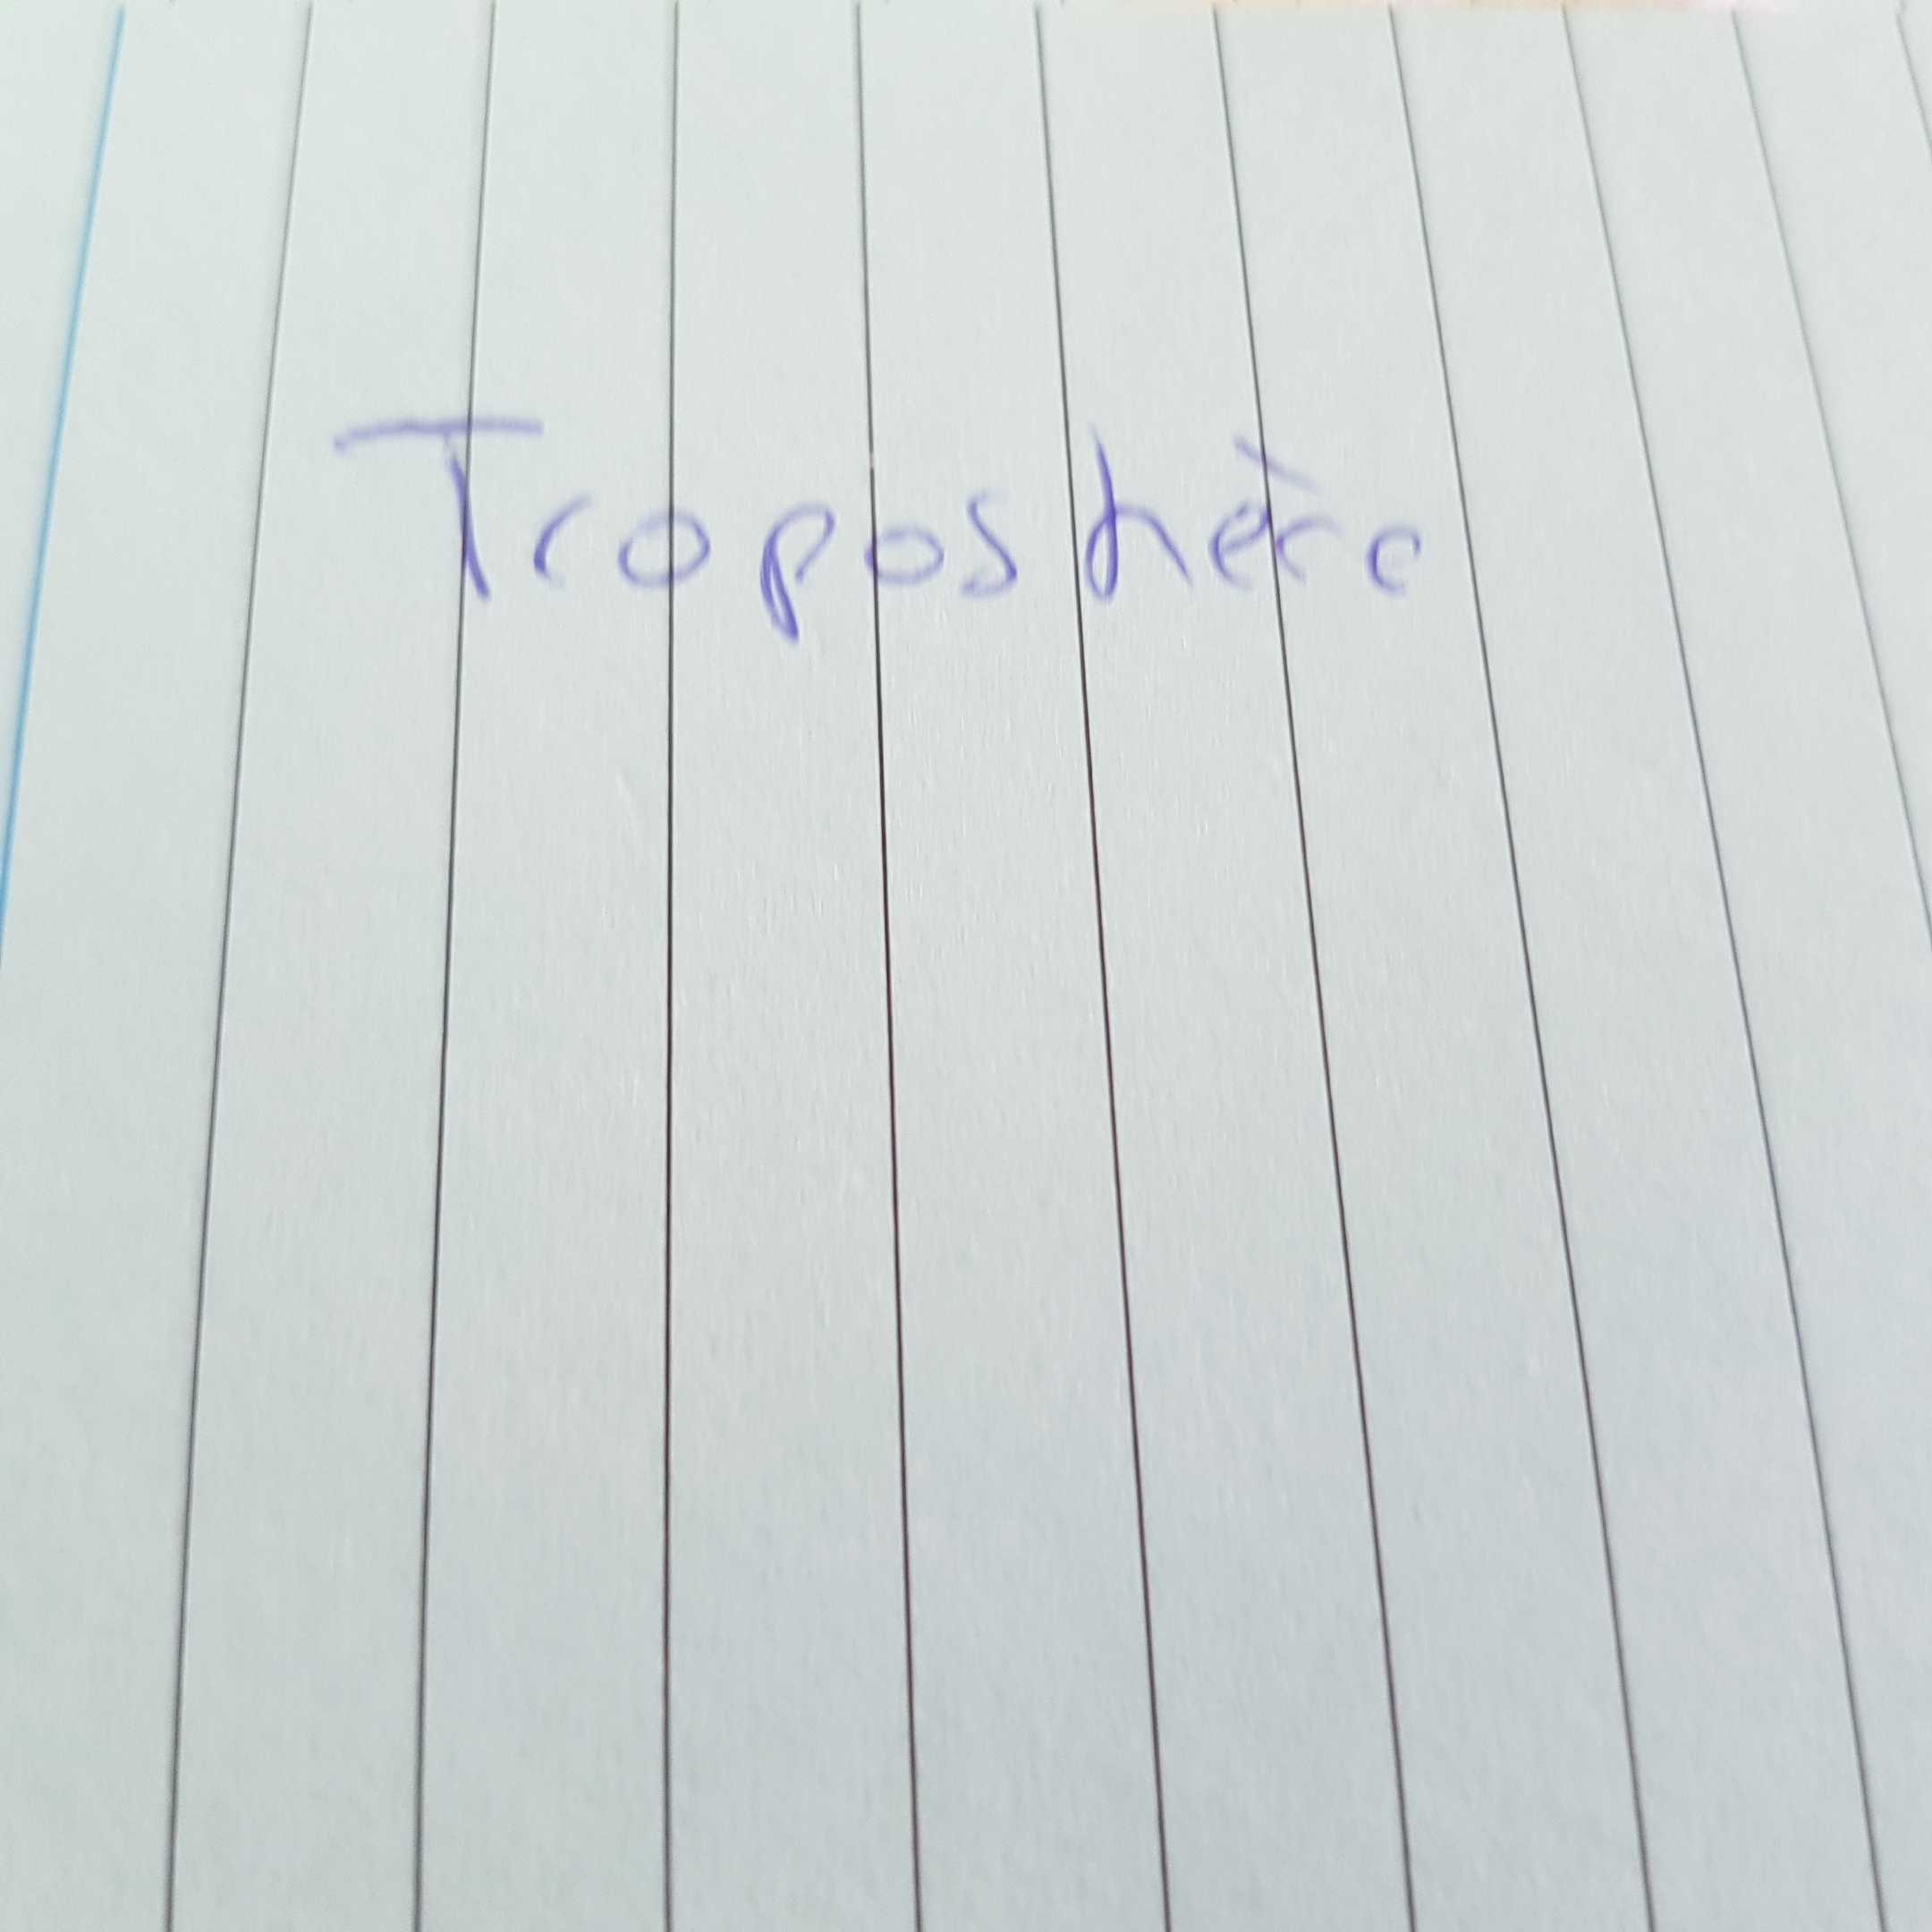 Troposhère